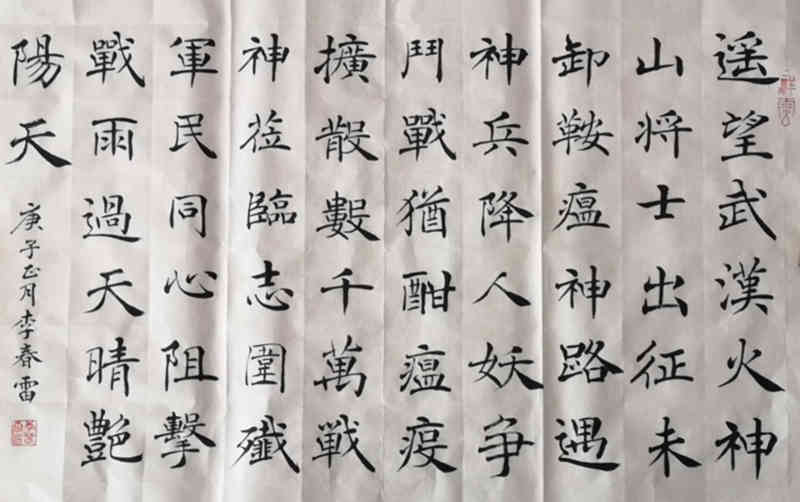 遥望武漢火神
山将士出征未
卸鞍瘟神路遇
神兵降人妖争
鬥戰猶酣瘟疫
擴散數千萬戰
神蒞臨志圍殲
軍民同心阻擊
戰雨過天晴艷
陽天
庚子正月李春雷